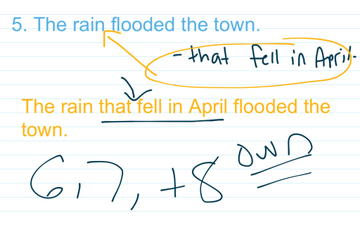 5. The rain flooded the town.
- that fell in April.
The rain that fell in April flooded the
town.
6, 7, +8 own